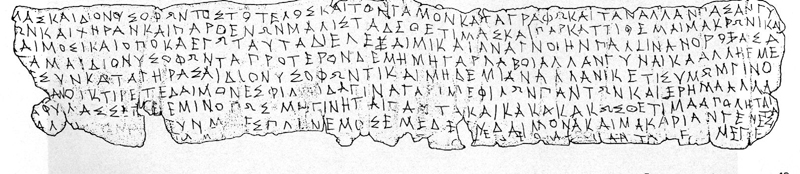 ΜΑΣΚΑΙΔΙΟΝΥΣΟΦΩΝΤΟΣΤΟΤΕΛΟΣΚΑΙΤΟΝΓΑΜΟΝΚΑΤΑΓΡΑΦΩΚΑΙΤΑΝΑΛΛΑΝΠΑΣΑΝΓΥ
ΩΝΚΑΙΧΗΡΑΝΚΑΙΠΑΡΘΕΝΩΝΜΑΛΙΣΤΑΔΕΘΕΤΙΜΑΣΚΑΙΠΑΡΚΑΤΤΙΘΕΜΑΙΜΑΚΡΩΝΙΚΑΙ
ΔΑΙΜΟΣΙΚΑΙΟΠΟΚΑΕΓΩΤΑΥΤΑΔΙΕΛΕΞΑΙΜΙΚΑΙΑΝΑΓΝΟΙΗΝΠΑΛΙΝΑΝΟΡΟΞΑΣΑ
ΓΑΜΑΙΔΙΟΝΥΣΟΦΩΝΤΑΠΡΟΤΕΡΟΝΔΕΜΗΜΗΓΑΡΛΑΒΟΙΑΛΛΑΝΓΥΝΑΙΚΑΑΛΛΗΕΜΕ
ΕΣΥΝΚΑΤΑΓΗΡΑΣΑΙΔΙΟΝΥΣΟΦΩΝΤΙΚΑΙΜΗΔΕΜΙΑΝΑΛΛΑΝΙΚΕΤΙΣΥΜΩΜΓΙΝΟ
ΑΝΟΙΚΤΙΡΕΤΕΔΑΙΜΟΝΕΣΦΙΛΟΙΔΑΓΙΝΑΓΑΡΙΜΕΦΙΛΩΝΠΑΝΤΩΝΚΑΙΕΡΗΜΑΑΛΛΑ
ΦΥΛΑΣΣΕΤΕΕΜΙΝΟΠΩΣΜΗΓΙΝΗΤΑΙΤΑΥΤΑΚΑΙΚΑΚΑΚΑΚΩΣΘΕΤΙΜΑΑΠΟΛΗΤΑΙ
ΑΛ ΥΝΜ ΕΣΠΛΗΝΕΜΟΣΕΜΕΔΕΕΥΔΑΙΜΟΝΑΚΑΙΜΑΚΑΡΙΑΝΓΕΝΕΣ